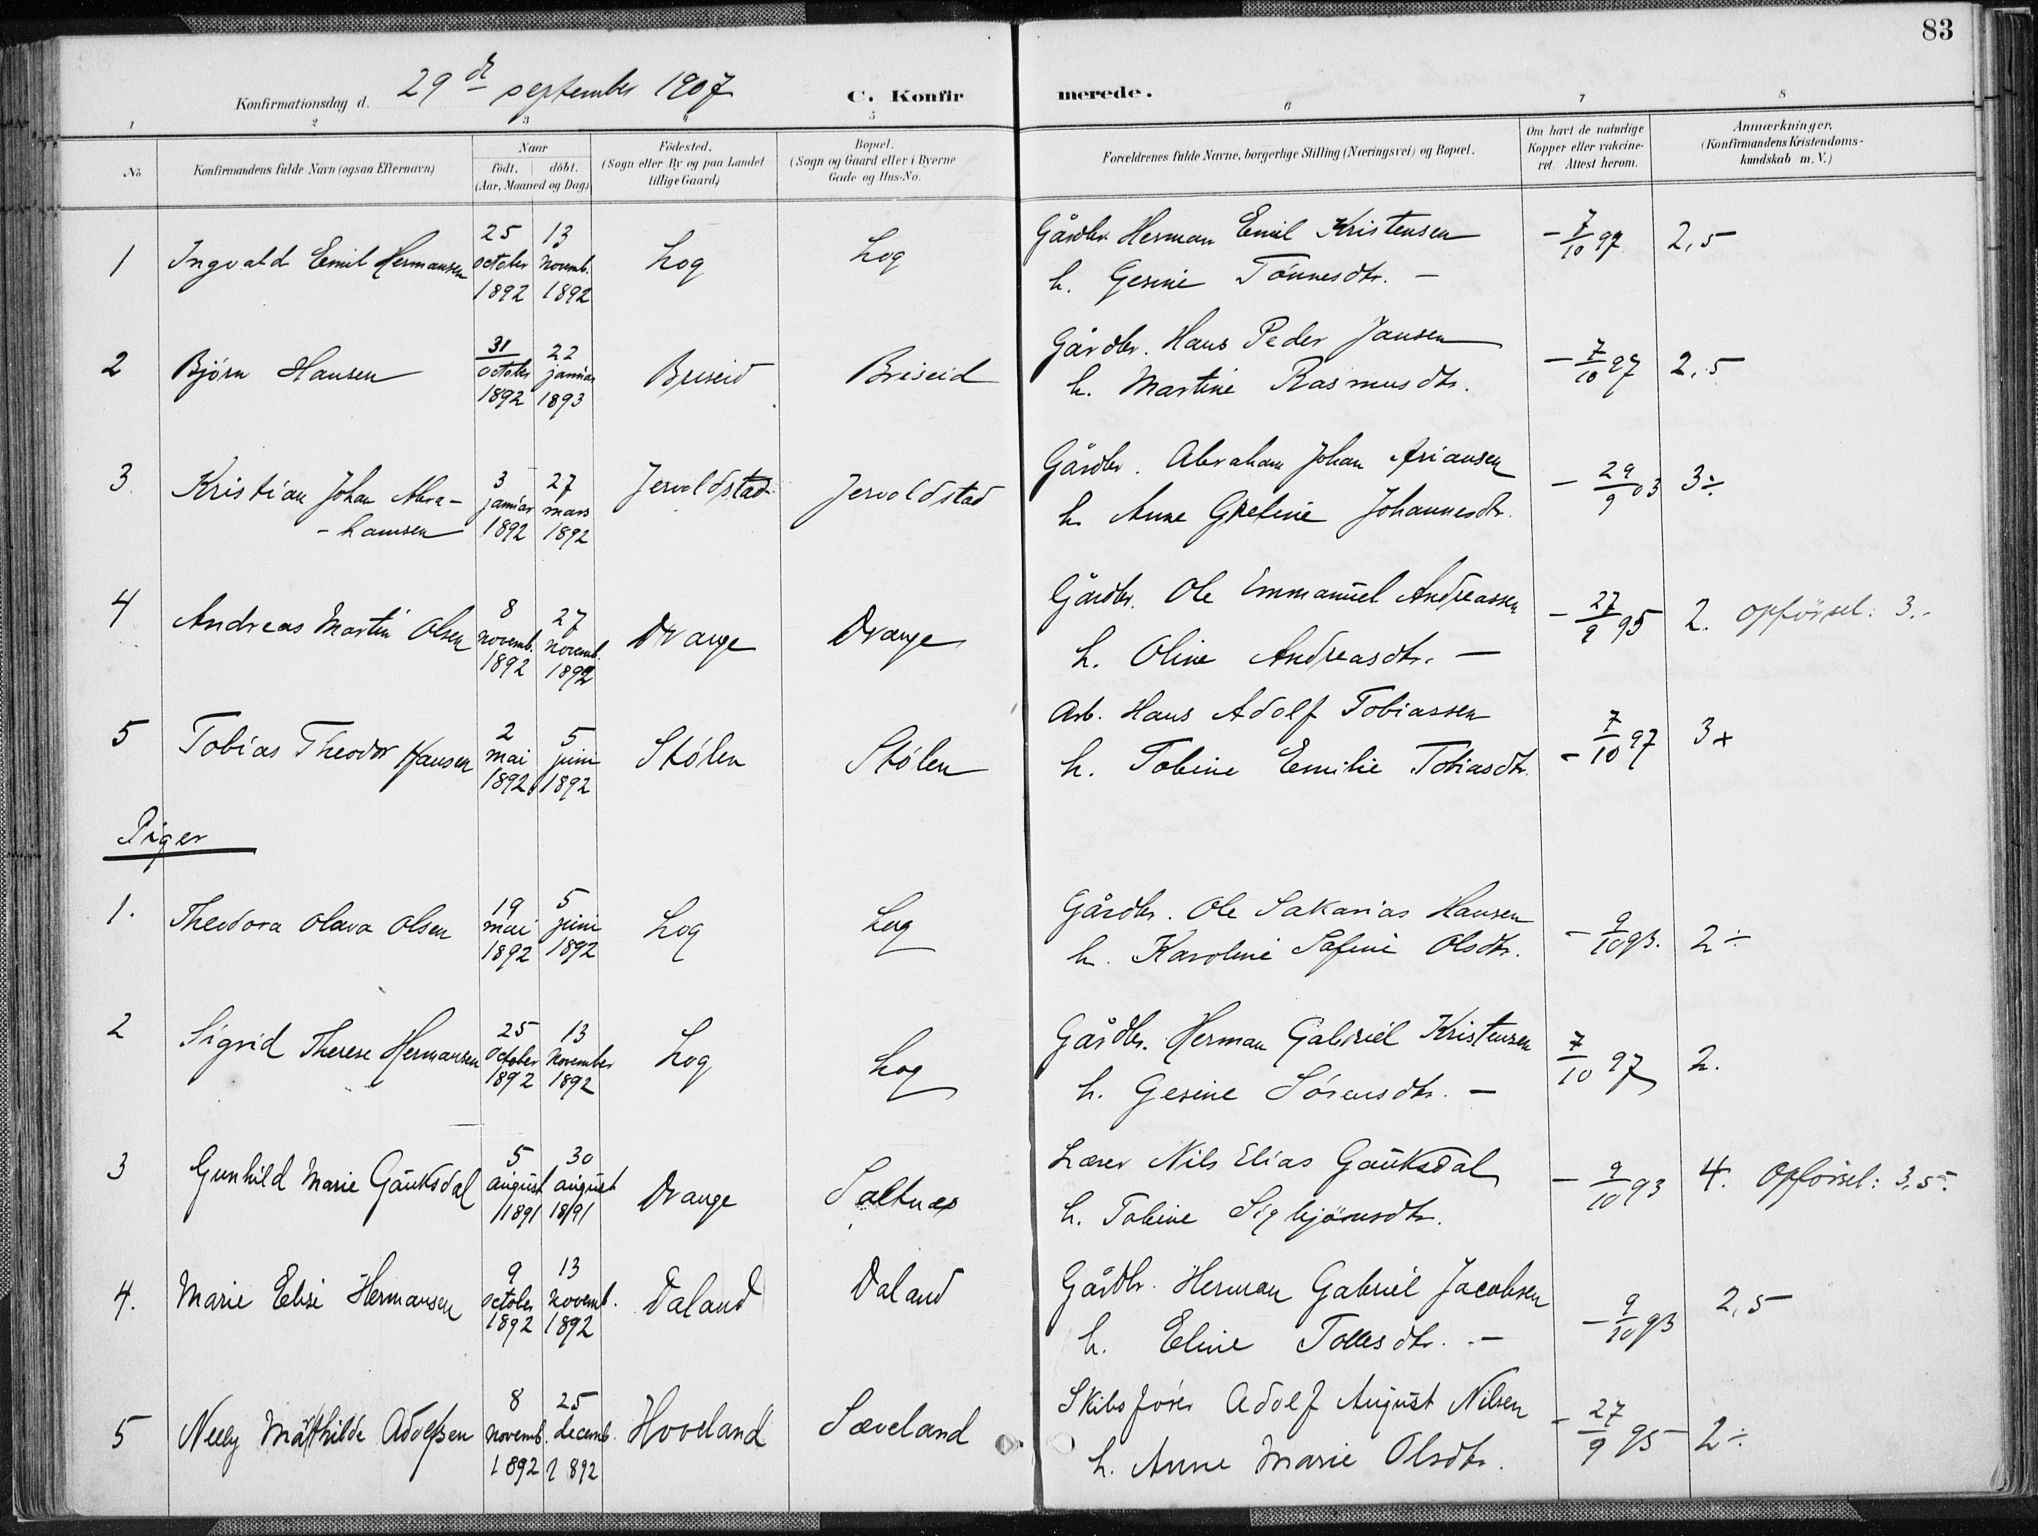 83
Konfirmationsdag d. 29de september 1907 C. Konfirmerede.
1 2 3 4 5 6 7 8
No
Konfirmandens fulde Navn (ogsaa Efternavn)
Naar
födt. döbt.
(Aar, Maaned og Dag)
Födested.
(Sogn eller By og paa Landet
tillige Gaard)
Bopæl.
(Sogn og Gaard eller i Byerne
Gade og Hus-No.
Forældrenes fulde Navne, borgerlige Stilling (Næringsvei) og Bopæl.
Om havt de naturlige
Kopper eller vakcine-
ret. Attest herom.
Anmærkninger.
(Konfirmandens Kristendoms-
kundskab m. V.)
1 Ingvald Emil Hermansen 25 october 1892 13 novemb. 1892 Log Log Gårdbr. Herman Emil Kristensen – 7/10 97 2,5
h. Gesine Tönnesdtr. –
2 Björn Hansen 31 october 1892 22 januar 1893 Briseid Briseid Gårdbr. Hans Peder Jansen – 7/10 97 2,5
h. Martine Rasmusdtr.
3 Kristian Johan Abra- 3 januar 1892 27 mars 1892 Jervoldstad Jervoldstad Gårdbr. Abraham Johan Ariansen – 29/9 03 3÷
-hamsen h. Anne Gretine Johannesdtr.
4 Andreas Martin Olsen 8 novemb. 1892 27 novemb. 1892 Drange Drange Gårdbr. Ole Emmanuel Andreassen – 27/9 95 2. Opförsel: 3.-
h. Oline Andreasdtr. –
5 Tobias Theodor Hansen 2 mai 1892 5 juni 1892 Stölen Stölen Arb. Hans Adolf Tobiassen – 7/10 97 3+
h. Tobine Emilie Tobiasdtr.
Piger
1. Theodora Olava Olsen 19 mai 1892 5 juni 1892 Log Log Gårdbr. Ole Sakarias Hansen – 9/10 93. 2÷
h. Karoline Sofine Olsdtr.
2 Sigrid Therese Hermansen 25 October 1892 13 November 1892 Log Log Gårdbr. Herman Gabriel Kristensen 7/10 97 2.
h. Gesine Sörensdtr. –
3 Gunhild Marie Gauksdal 5 august 1891 30 august 1891 Drange Saltnes Lærer Nils Elias Gauksdal – 9/10 93 4. Opförsel: 3,5.
h. Tobine Sigbjörnsdtr.
4. Marie Elise Hermansen 9 october 1892 13 novemb. 1892 Daland Daland Gårdbr. Herman Gabriel Jacobsen – 9/10 93 2,5
h. Eline Tollesdtr. –
5 Nelly Mathilde Adolfsen 8 novemb. 1892 25 decemb. 1892 Hoveland Sæveland Skibsförer Adolf August Nilsen – 27/9 95 2÷
h. Anne Marie Olsdtr.